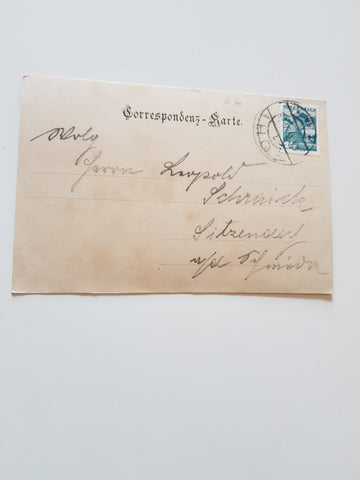 Correspondenz-Karte.
Wolg
Herrn Leopold
Schraick
Sitzendorf
a/d Schmida